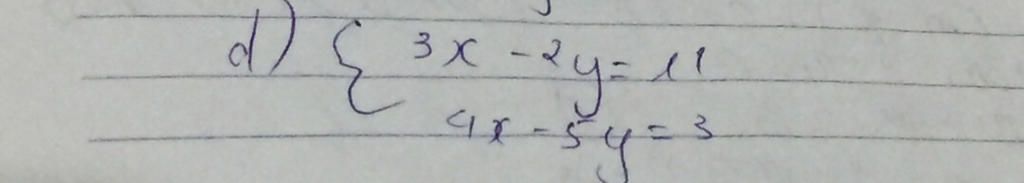 d) { 3x - 2y = 11
4x - 5y = 3